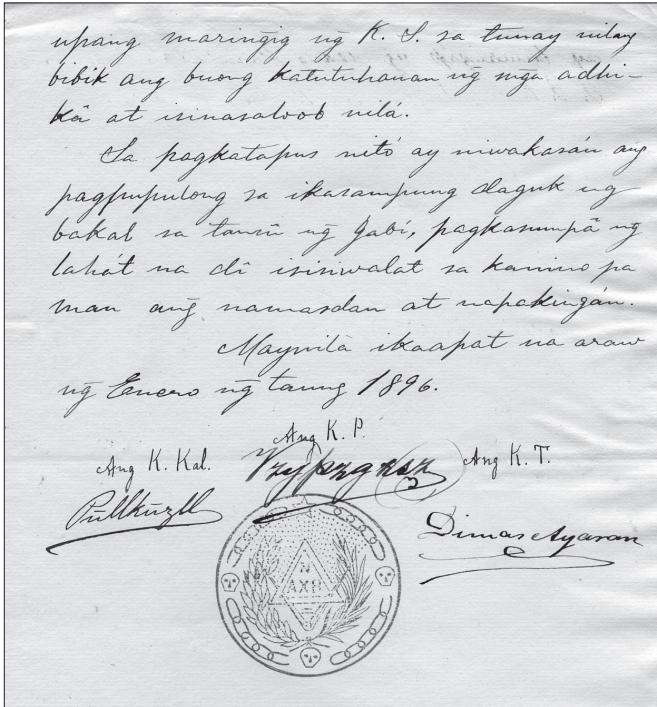 upang maringig ng K. S. sa tunay nilang
bibik ang buong katutuhanan ng mga adhi-
kâ at isinasaloob nilá.
Sa pagkatapus nitó ay niwakasán ang
pagpupulong sa ikasampung daguk ng
bakal sa tansû ng gabí, pagkasumpâ ng
lahát na dî isisiwalat sa kanino pa
man ang namasdan at napakingán.
Maynilà ikaapat na araw
ng Enero ng taung 1896.
Ang K. P.
Ang K. Kal.
Ang K. T.
Dimas Ayaran
N
AXB